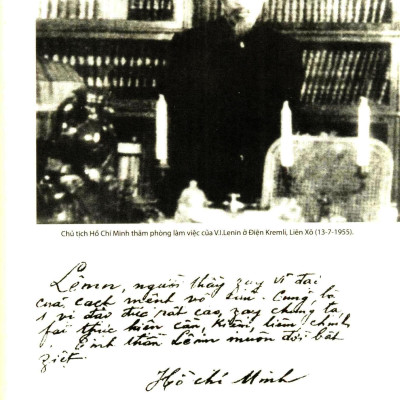 Chủ tịch Hồ Chí Minh thăm phòng làm việc của V.I.Lenin ở Điện Kremli, Liên Xô (13-7-1955).
Lênin, người thầy zạy vĩ đại
của cách mệnh vô sản. Cũng là
1 vị đạo đức rất cao, zạy chúng ta
fải thực hiện cần, kiệm, liêm, chính.
Tinh thần Lênin muôn đời bất
ziệt.
Hồ Chí Minh